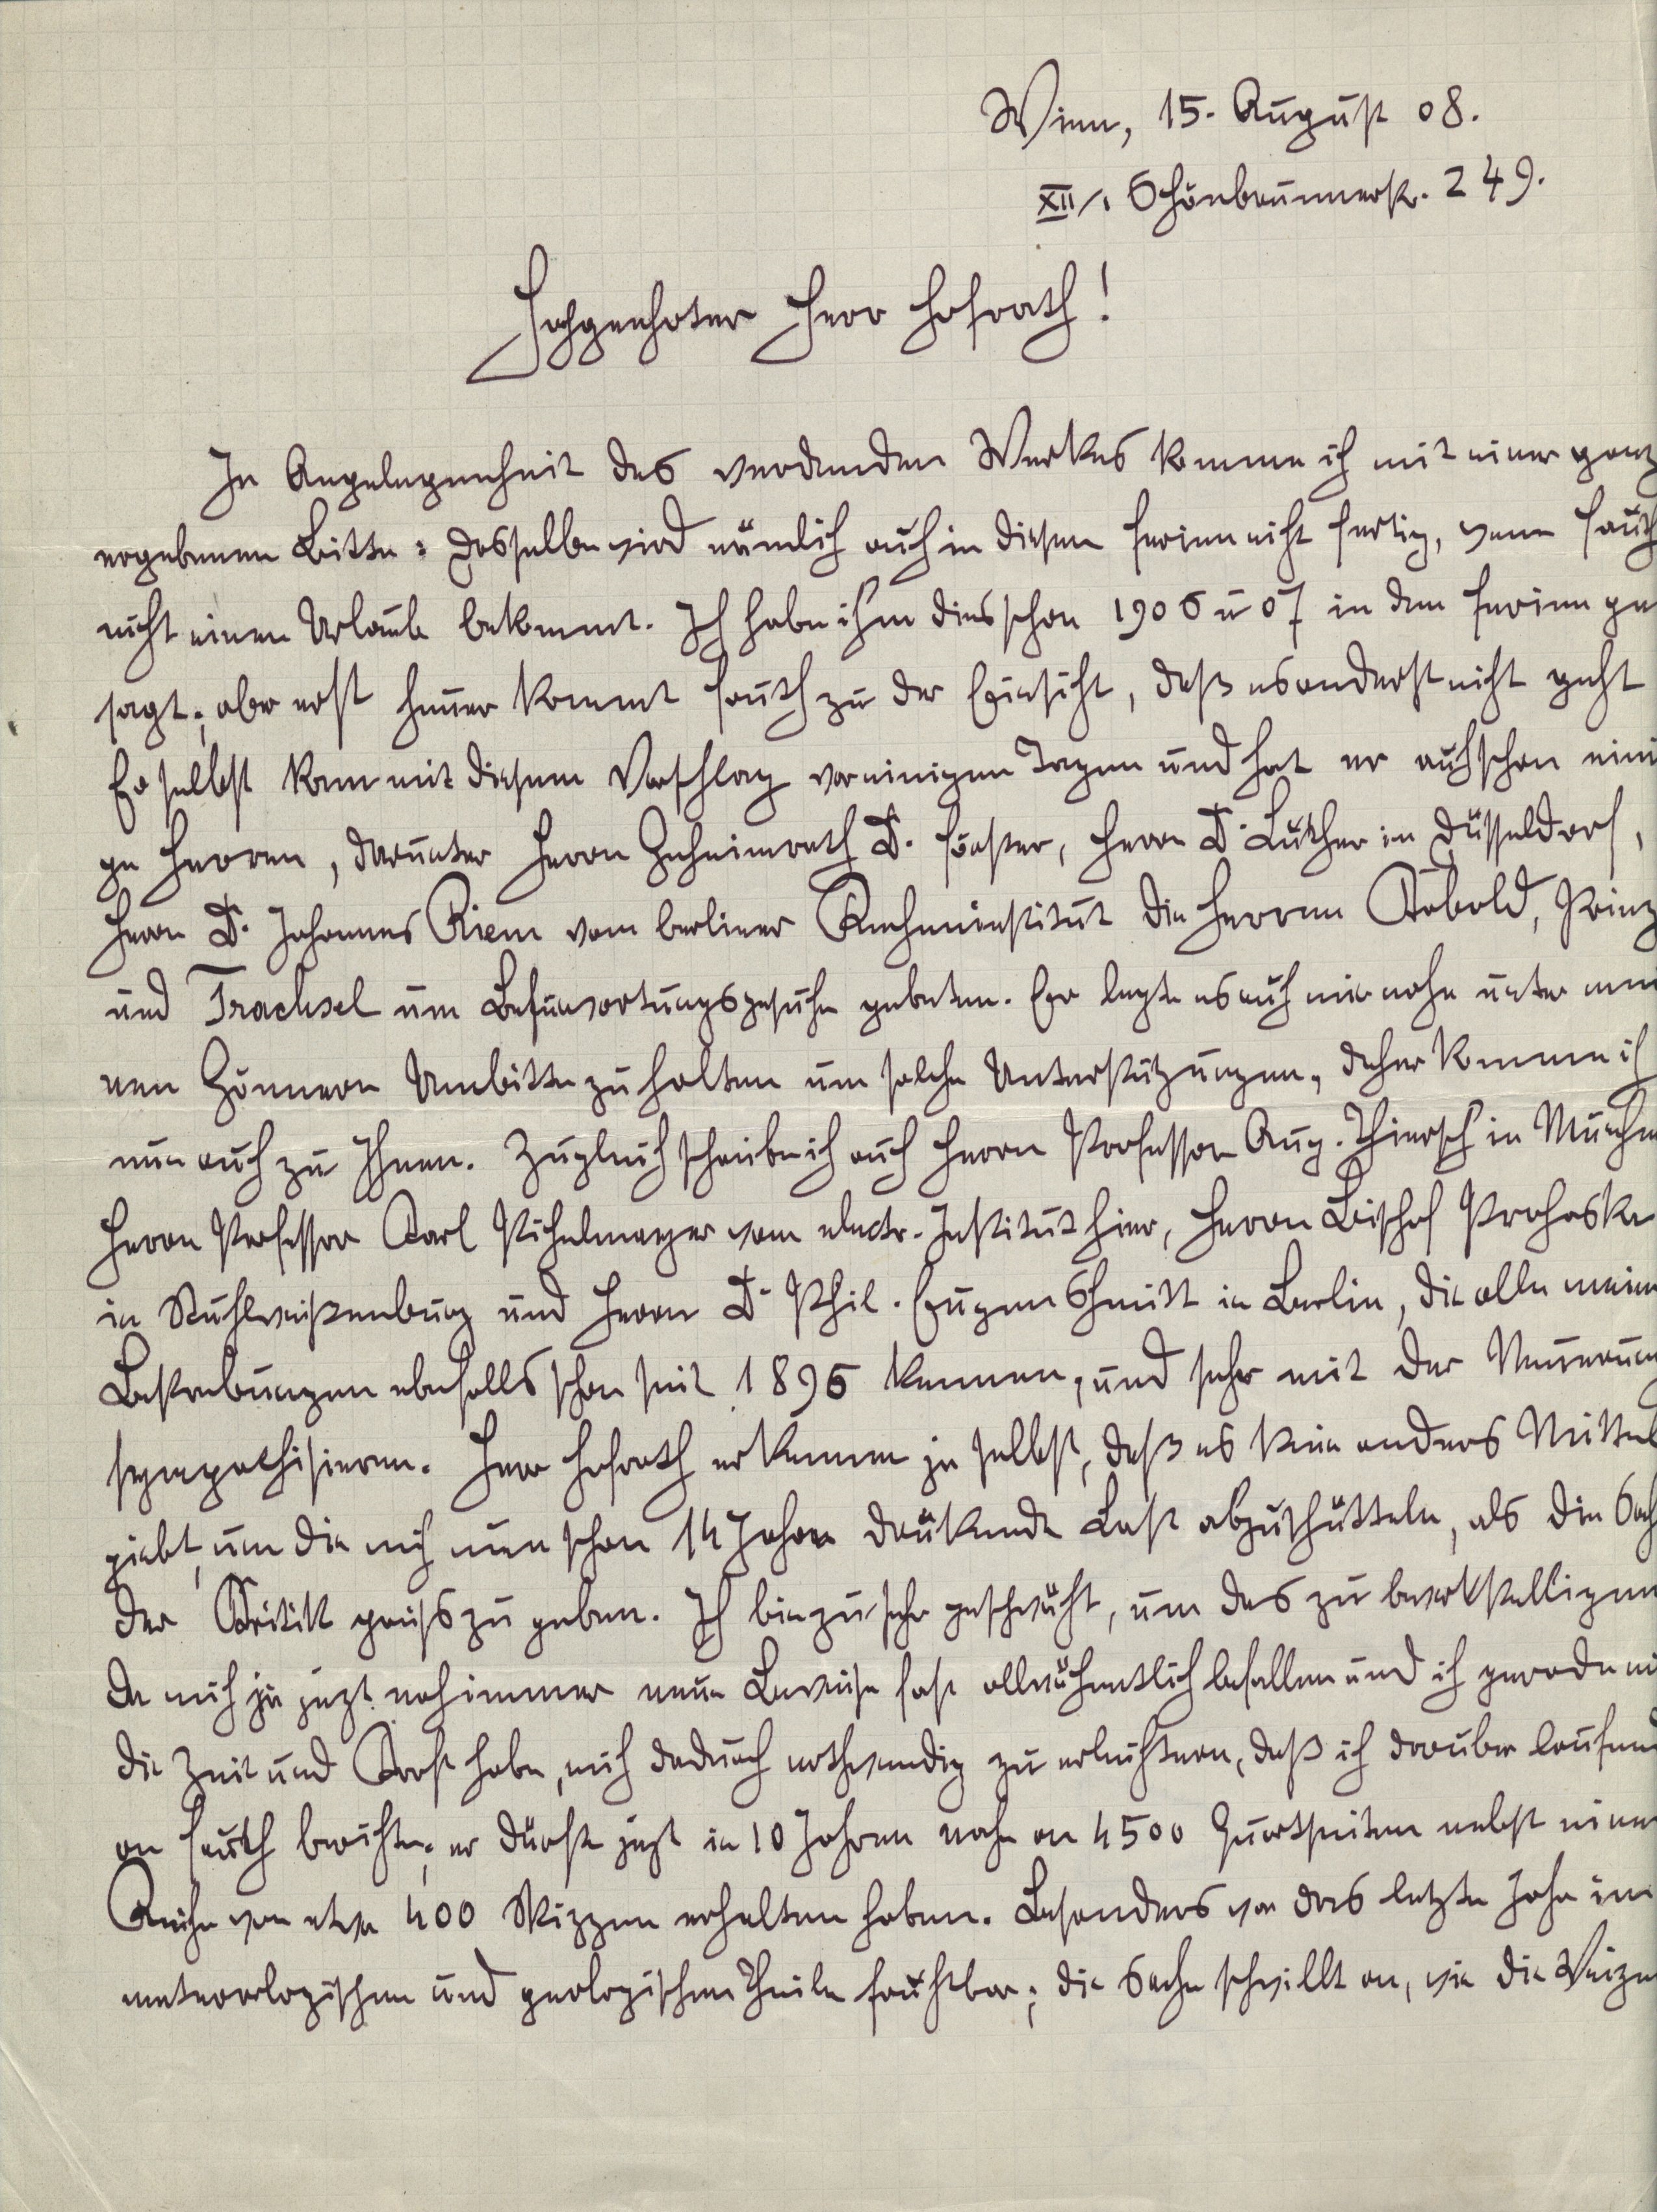 Wien, 15. August 08.
XII/1 Schönbrunnerstr. 249.
Hochgeehrter Herr Hofrath!
In Angelegenheit des werdenden Werkes komme ich mit einer ganz
ergebenen Bitte: Dasselbe wird nämlich auch in diesen Ferien nicht fertig, wenn Fauth
nicht einen Urlaub bekommt. Ich habe ihm dies schon 1906 u 07 in den Ferien ge
sagt; aber erst heuer kommt Fauth zu der Einsicht, daß es anderst nicht geht
Er selbst kam mit diesem Vorschlag vor einigen Tagen und hat er auch schon eini
ge Herren, darunter Herrn Geheimrath Dr. Förster, Herrn Dr Luther in Düsseldorf,
Herrn Dr. Johannes Riem vom berliner Recheninstitut die Herren Kobold, Prinz
und Trachsel um Befürwortungsgesuche gebeten. Er legte es auch mir nahe unter mei
nen Gönnern Umbitte zu halten um solche Unterstützungen, daher komme ich
nun auch zu Ihnen. Zugleich schreibe ich auch Herrn Professor Aug. Thiersch in München
Herrn Professor Karl Pichelmayer vom electr. Institut hier, Herrn Bischof Prohaska
in Stuhlweißenburg und Herrn Dr Phil. Eugen Schmitt in Berlin, die alle meine
Bestrebungen ebenfalls schon seit 1896 kennen, und sehr mit der Neuerung
sympathisieren. Herr Hofrath erkennen ja selbst, daß es kein anders Mittel
giebt, um die mich nun schon 14 Jahre drückende Last abzuschütteln, als die Sach
der Kritik preiszugeben. Ich bin zu sehr geschwächt, um das zu bewerkstelligen
da mich ja jezt noch immer neue Beweise fast allwöchentlich befallen und ich gerade ni
die Zeit und Kraft habe, mich dadurch nothwendig zu erleichtern, daß ich darüber laufend
an Fauth berichte; er dürfte jezt in 10 Jahren nahe an 4500 Quartseiten nebst einer
Reihe von etwa 400 Skizzen erhalten haben. Besonders war das letzte Jahr im
meteorologischen und geologischen Theile fruchtbar; die Sache schwillt an, wie die Weizen